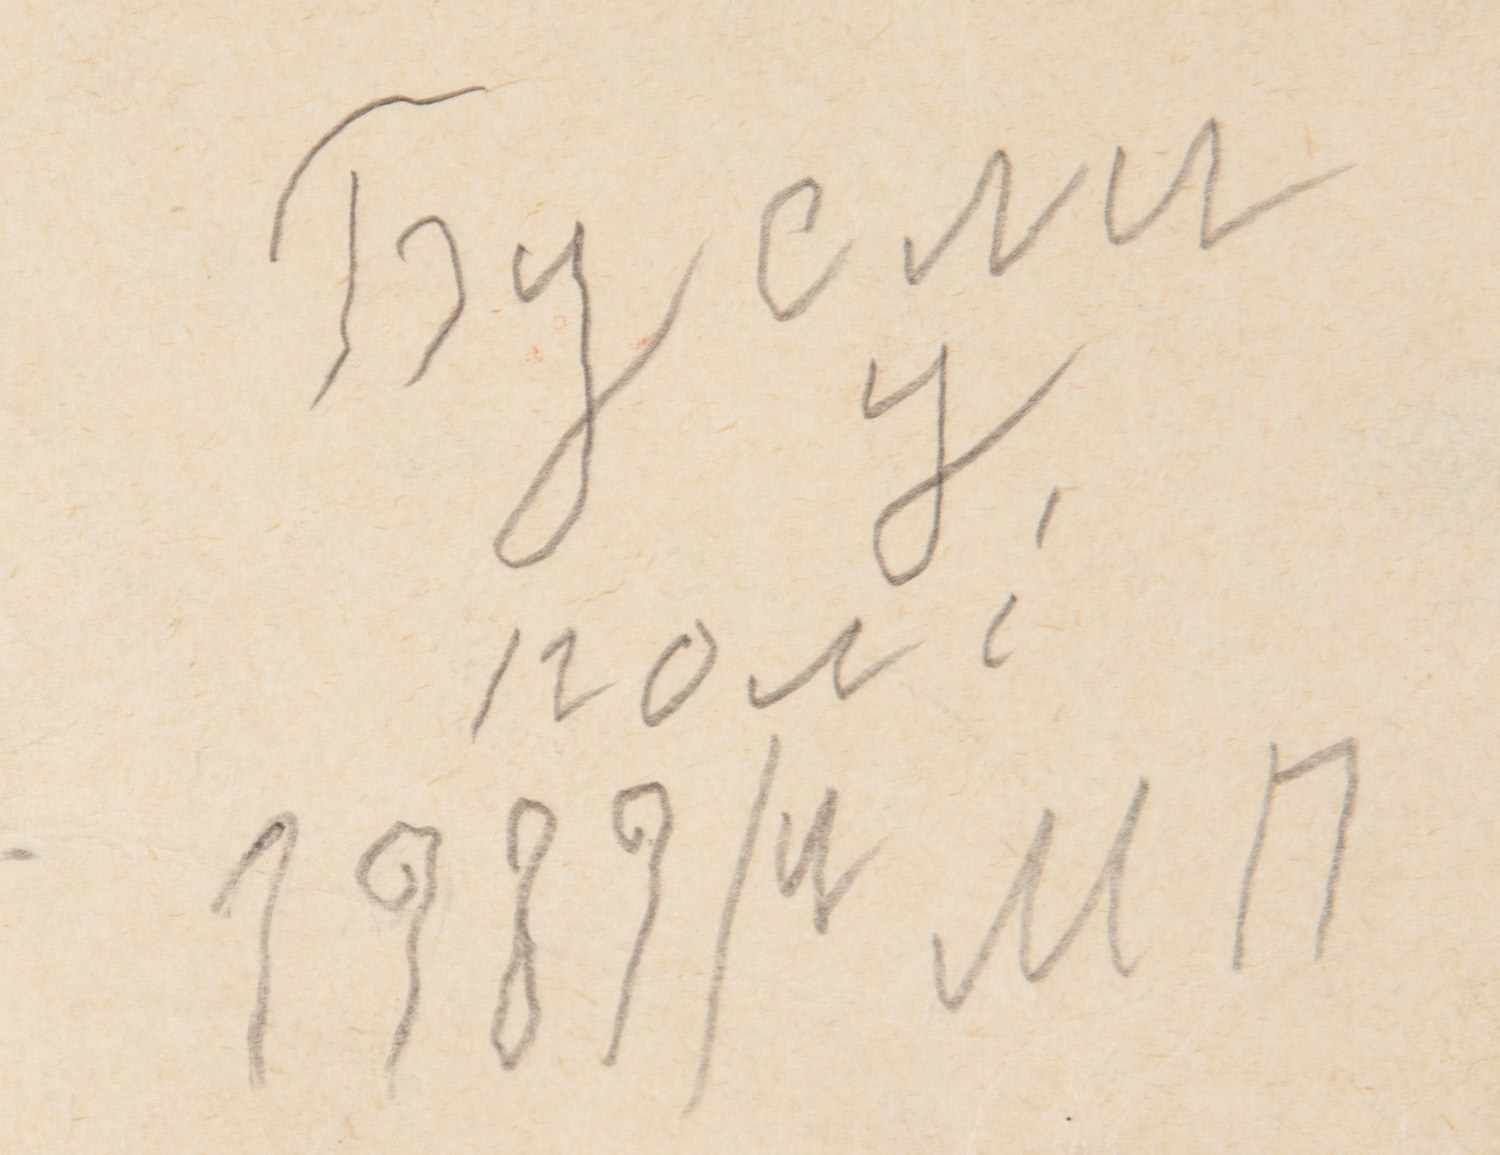 Бусли
у
полі
1989/4 МП